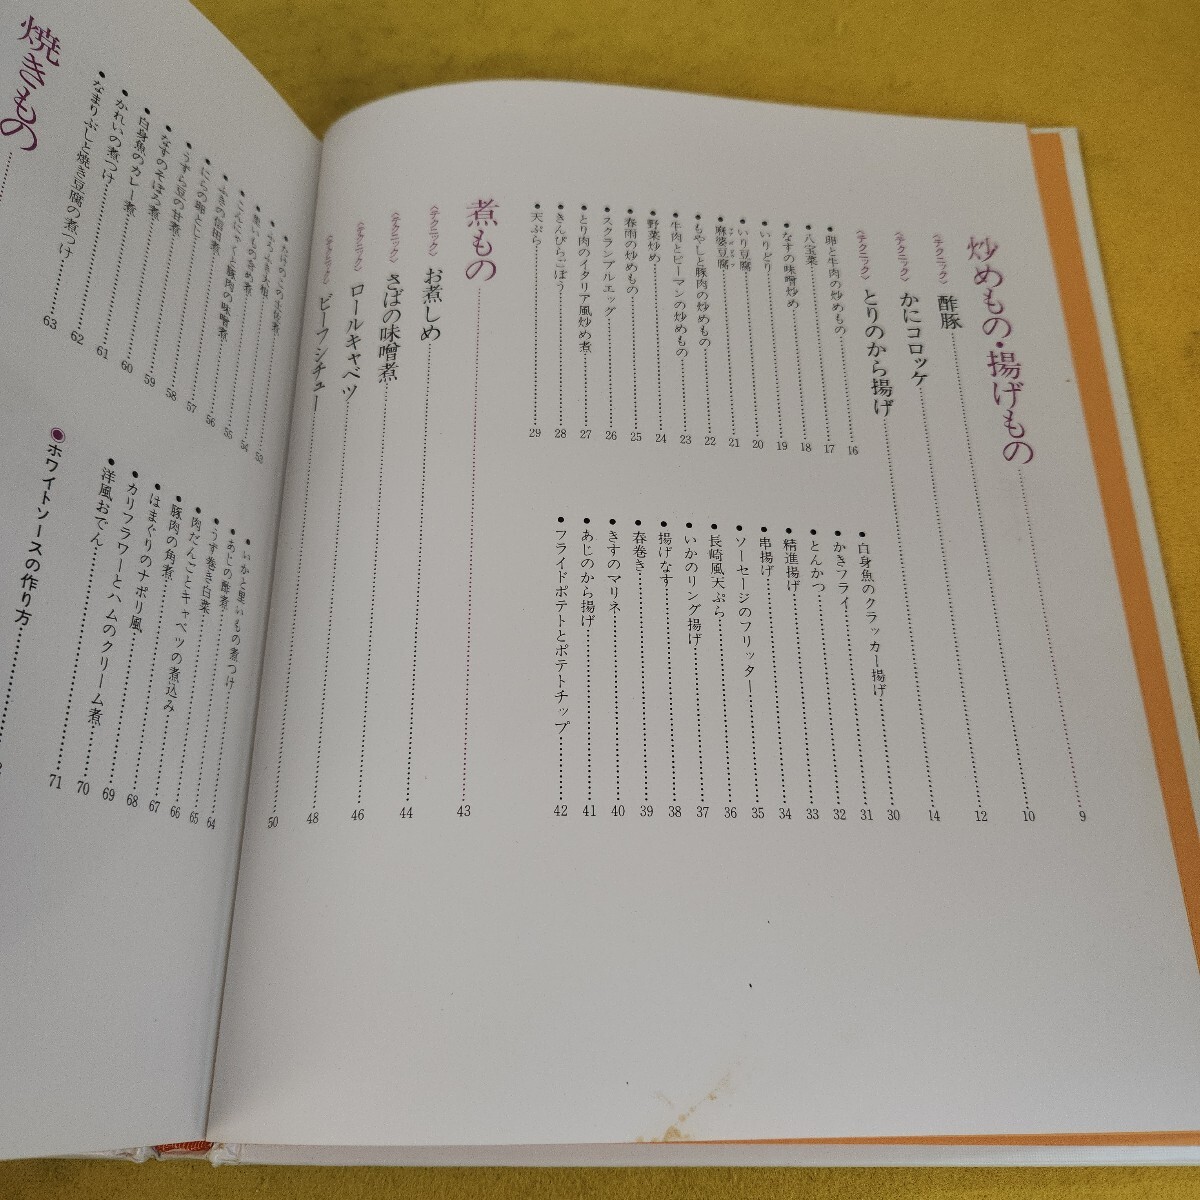 炒めもの・揚げもの 9
〈テクニック〉 酢豚 10
〈テクニック〉 かにコロッケ 12
〈テクニック〉 とりのから揚げ 14
●卵と牛肉の炒めもの 16
●八宝菜 17
●なすの味噌炒め 18
●いりどり 19
●いり豆腐 20
●麻婆豆腐 21
●もやしと豚肉の炒めもの 22
●牛肉とピーマンの炒めもの 23
●野菜炒め 24
●春雨の炒めもの 25
●スクランブルエッグ 26
●とり肉のイタリア風炒め煮 27
●きんぴらごぼう 28
●天ぷら 29
●白身魚のクラッカー揚げ 30
●かきフライ 31
●とんかつ 32
●精進揚げ 33
●串揚げ 34
●ソーセージのフリッター 35
●長崎風天ぷら 36
●いかのリング揚げ 37
●揚げなす 38
●春巻き 39
●きすのマリネ 40
●あじのから揚げ 41
●フライドポテトとポテトチップ 42
煮もの 43
〈テクニック〉 お煮しめ 44
〈テクニック〉 さばの味噌煮 46
〈テクニック〉 ロールキャベツ 48
〈テクニック〉 ビーフシチュー 50
●たけのこの土佐煮 52
●里いもの含め煮 54
●こんにゃくと豚肉の味噌煮 55
●ふきの信田煮 56
●にらの卵とじ 57
●うずら豆の甘煮 58
●なすのそぼろ煮 59
●白身魚のカレー煮 60
●かれいの煮つけ 61
●なまりぶしと焼き豆腐の煮つけ 62
63
●いかと里いもの煮つけ 64
●あじの酢煮 65
●うず巻き白菜 66
●肉だんごとキャベツの煮込み 67
●豚肉の角煮 68
●はまぐりのナポリ風 69
●カリフラワーとハムのクリーム煮 70
●洋風おでん 71
●ホワイトソースの作り方
焼きもの